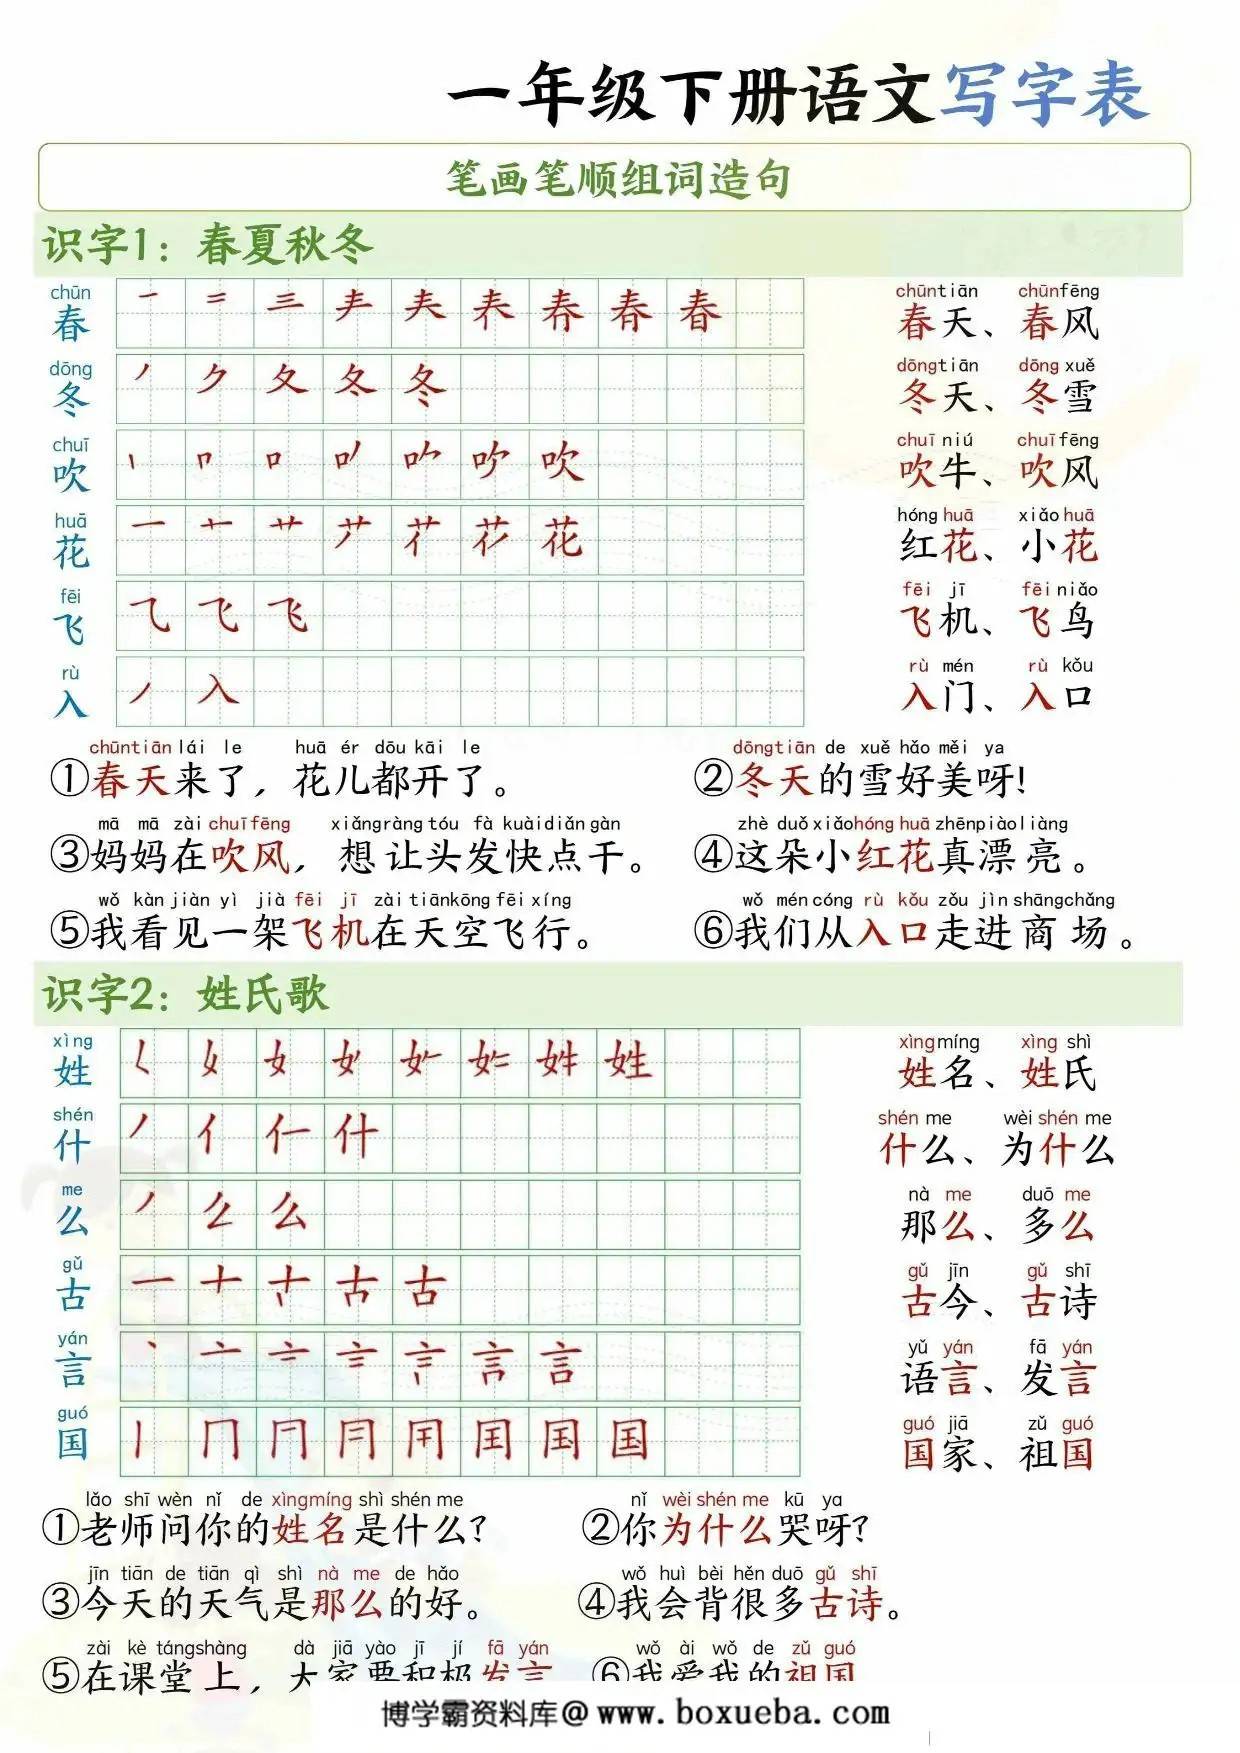 一年级下册语文写字表
笔画笔顺组词造句
识字1：春夏秋冬
chūn chūntiān chūnfēng
春 一 二 三 𡗗 春 春天、春风
dōng dōngtiān dōng xuě
冬 丿 ク 夂 冬 冬天、冬雪
chuī chuī niú chuīfēng
吹 丨 口 吹 吹牛、吹风
huā hóng huā xiǎo huā
花 一 艹 花 红花、小花
fēi fēi jī fēi niǎo
飞 乁 飞 飞 飞机、飞鸟
rù rù mén rù kǒu
入 丿 入 入门、入口
chūntiān lái le huā ér dōu kāi le dōngtiān de xuě hǎo měi ya
①春天来了，花儿都开了。 ②冬天的雪好美呀！
mā mā zài chuīfēng xiǎngràng tóu fà kuàidiǎn gàn zhè duǒ xiǎohóng huā zhēnpiàoliàng
③妈妈在吹风，想让头发快点干。 ④这朵小红花真漂亮。
wǒ kàn jiàn yì jià fēi jī zài tiānkōng fēi xíng wǒ mén cóng rù kǒu zǒu jìn shāngchǎng
⑤我看见一架飞机在天空飞行。 ⑥我们从入口走进商场。
识字2：姓氏歌
xìng xìngmíng xìng shì
姓 𡿨 女 姓 姓名、姓氏
shén shén me wèi shén me
什 丿 亻 仁 什 什么、为什么
me nà me duō me
么 丿 么 么 那么、多么
gǔ gǔ jīn gǔ shī
古 一 十 古 古 古今、古诗
yán yǔ yán fā yán
言 丶 亠 言 语言、发言
guó guó jiā zǔ guó
国 丨 冂 国 国 国家、祖国
lǎo shī wèn nǐ de xìngmíng shì shén me nǐ wèi shén me kū ya
①老师问你的姓名是什么？ ②你为什么哭呀？
jīn tiān de tiān qì shì nà me de hǎo wǒ huì bèi hěn duō gǔ shī
③今天的天气是那么的好。 ④我会背很多古诗。
zài kè tángshàng dà jiā yào jī jí fā yán wǒ ài wǒ de zǔ guó
⑤在课堂上，大家要积极发言 ⑥我爱我的祖国
博学霸资料库@ www.boxueba.com